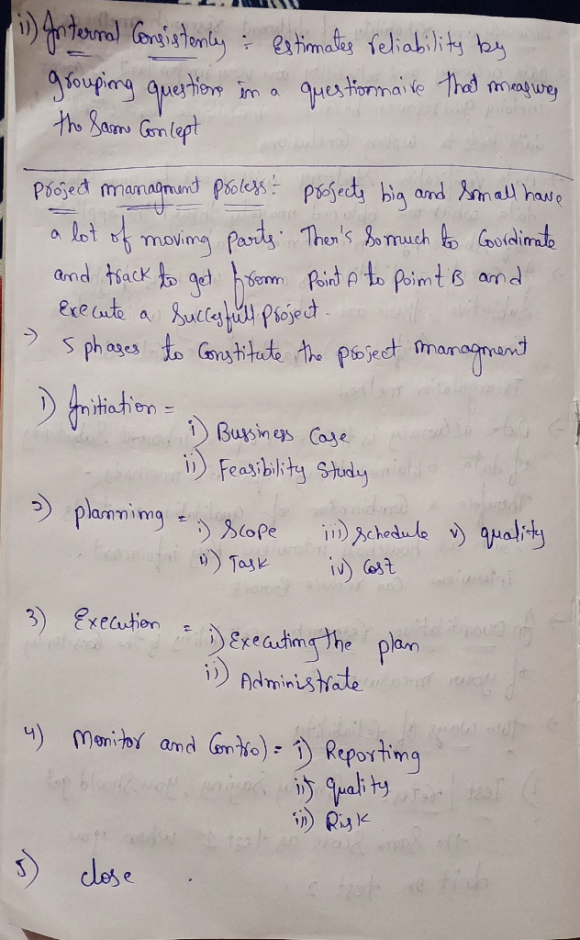 ii) Internal Consistently :- Estimates reliability by
grouping questions in a questionnaire that measures
the Same Concept
Project managment process :- Projects big and Small have
a lot of moving parts. Ther's So much to Coordinate
and track to get from Point A to Point B and
Execute a Succesfull project.
→ 5 phases to Constitute the project managment
1) Initiation =
i) Bussiness Case
ii) Feasibility Study
2) planning = i) Scope iii) Schedule v) quality
ii) Task iv) Cost
3) Execution = i) Executing the plan
ii) Administrate
4) Monitor and Control = i) Reporting
ii) quality
iii) Risk
5) close .